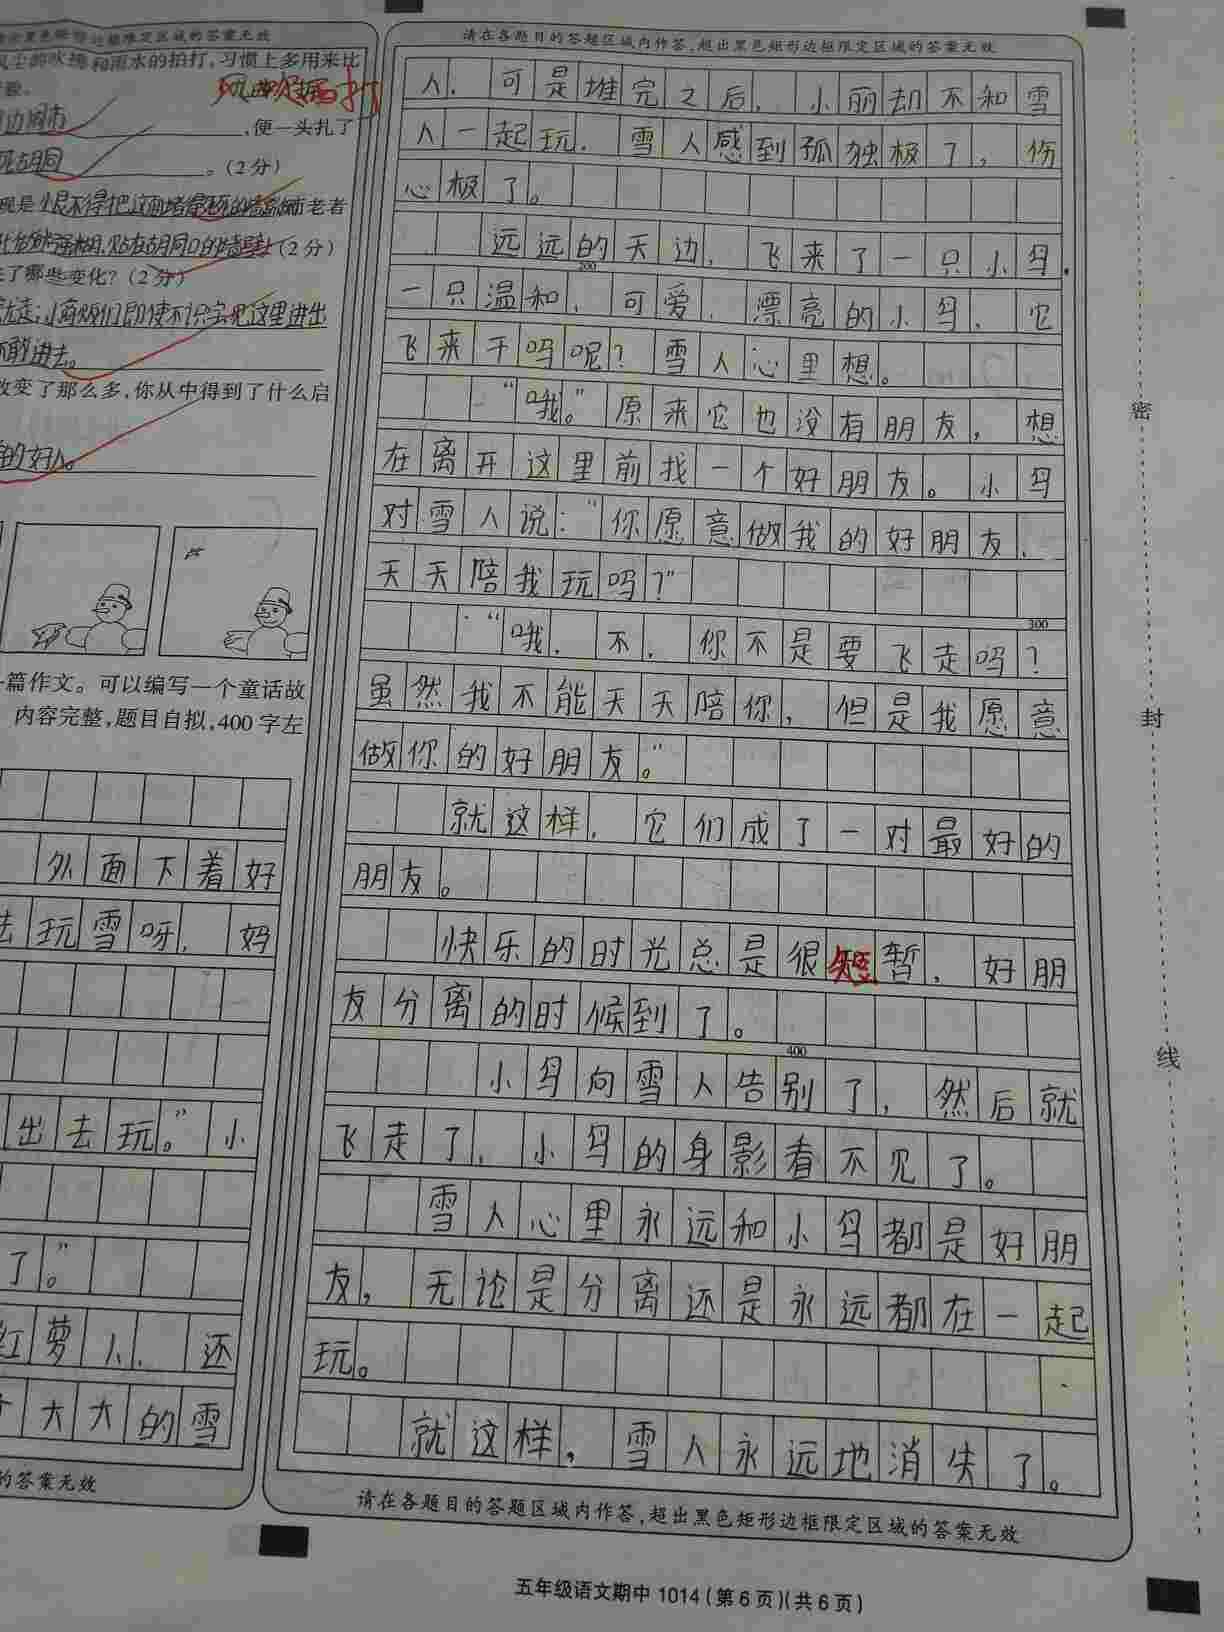 黑色矩形边框限定区域的答案无效
吹拂和雨水的拍打,习惯上多用来比
风吹
,便一头扎了
胡同
。(2分)
恨不得把这面堵得死死的墙
而老者
贴在胡同口的墙壁上(2分)
了哪些变化?(2分)
就走;小商贩们即使不识字把这里进出
不敢进去。
改变了那么多,你从中得到了什么启
的好人。
一篇作文。可以编写一个童话故
内容完整,题目自拟,400字左
外面下着好
去玩雪呀,妈
出去玩。”小
了”。
红萝卜,还
个大大的雪
的答案无效
请在各题目的答题区域内作答,超出黑色矩形边框限定区域的答案无效
人,可是堆完之后,小丽却不和雪
人一起玩,雪人感到孤独极了,伤
心极了。
远远的天边,飞来了一只小鸟,
200
一只温和,可爱,漂亮的小鸟,它
飞来干吗呢?雪人心里想。
“哦。”原来它也没有朋友,想
在离开这里前找一个好朋友。小鸟
对雪人说:“你愿意做我的好朋友,
天天陪我玩吗?”
300
“哦,不,你不是要飞走吗?
虽然我不能天天陪你,但是我愿意
做你的好朋友。”
就这样,它们成了一对最好的
朋友。
快乐的时光总是很短暂,好朋
友分离的时候到了。
400
小鸟向雪人告别了,然后就
飞走了,小鸟的身影看不见了。
雪人心里永远和小鸟都是好朋
友,无论是分离还是永远都在一起
玩。
就这样,雪人永远地消失了。
请在各题目的答题区域内作答,超出黑色矩形边框限定区域的答案无效
五年级语文期中 1014(第6页)(共6页)
密
封
线